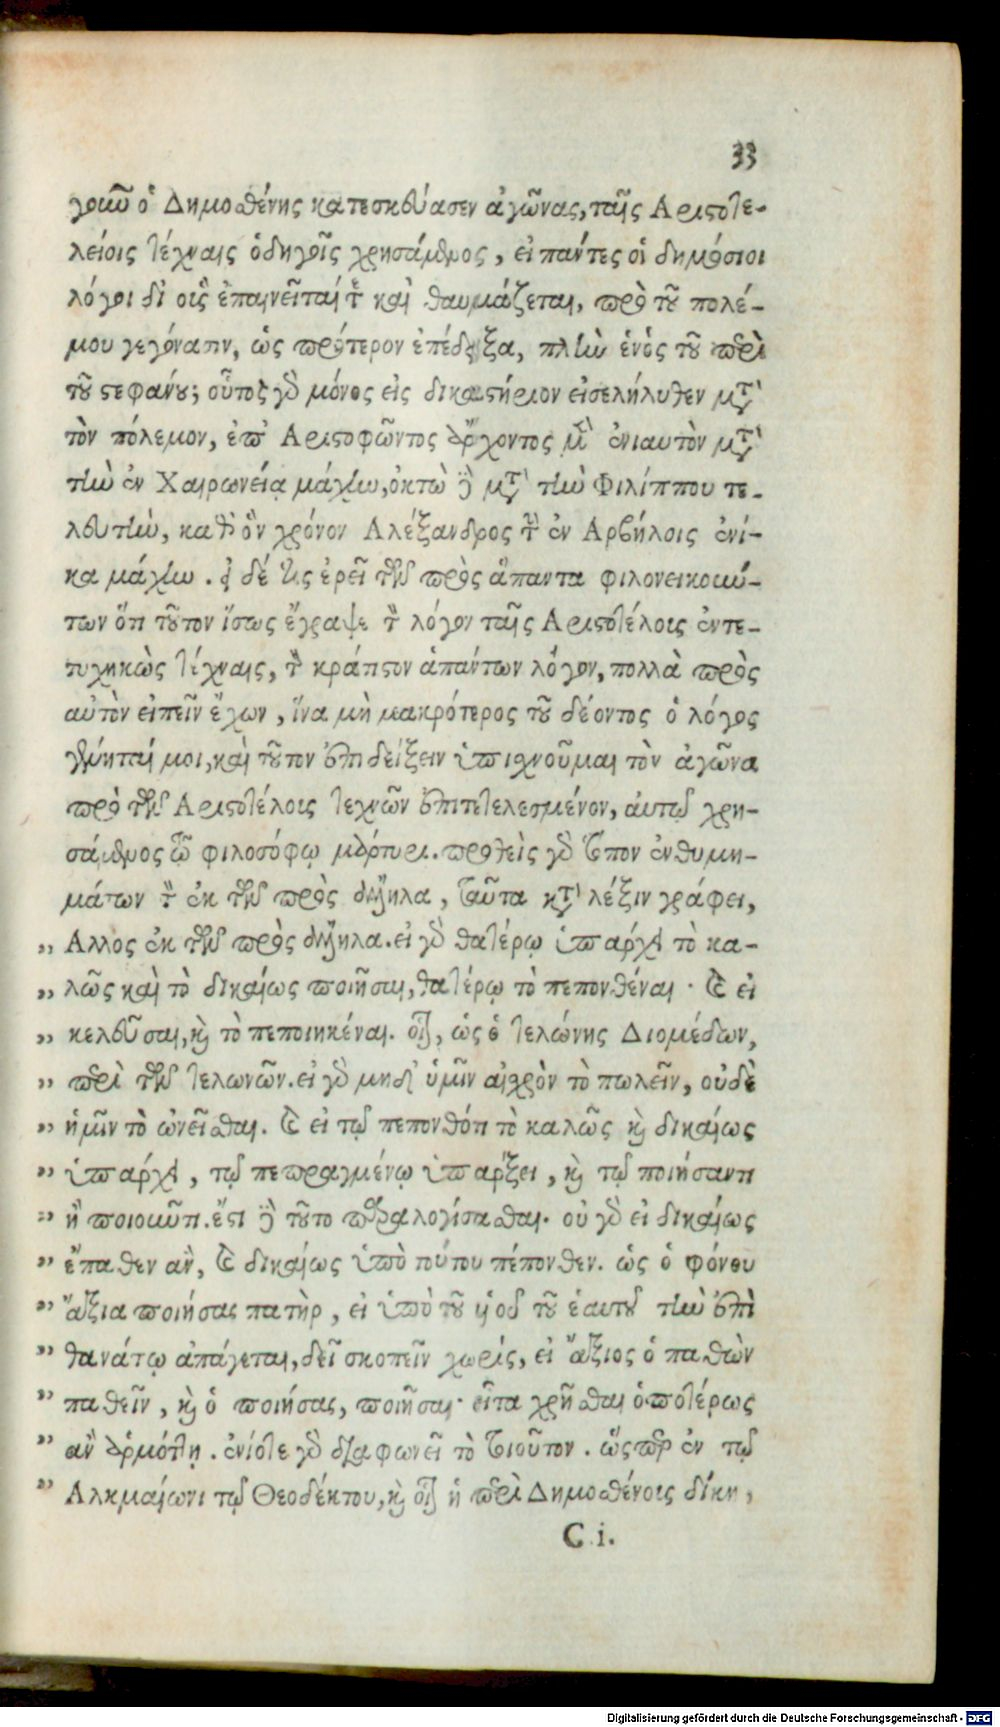 33
γοιῶ ὁ Δημοσθένης κατεσκεύασεν ἀγῶνας, ταῖς Αριστοτε-
λείοις τέχναις ὁδηγοῖς χρησάμενος, εἰ πάντες οἱ δημόσιοι
λόγοι δι' οὓς ἐπαινεῖταί τε καὶ θαυμάζεται, πρὸ τοῦ πολέ-
μου γεγόνασιν, ὡς πρότερον ἐπέδειξα, πλὴν ἑνὸς τοῦ περὶ
τοῦ στεφάνου; οὗτος γὰρ μόνος εἰς δικαστήριον εἰσελήλυθεν μετὰ
τὸν πόλεμον, ἐπ' Αριστοφῶντος ἄρχοντος μὲν ἐνιαυτὸν μετὰ
τὴν ἐν Χαιρωνείᾳ μάχην, ὀκτὼ δὲ μετὰ τὴν Φιλίππου τε-
λευτὴν, καθ' ὃν χρόνον Αλέξανδρος τὴν ἐν Αρβήλοις ἐνί-
κα μάχην. εἰ δέ τις ἐρεῖ τῶν πρὸς ἅπαντα φιλονεικούν-
των ὅτι τοῦτον ἴσως ἔγραψε τὸν λόγον ταῖς Αριστοτέλοις ἐντε-
τυχηκὼς τέχναις, τὸν κράτιστον ἁπάντων λόγον, πολλὰ πρὸς
αὐτὸν εἰπεῖν ἔχων, ἵνα μὴ μακρότερος τοῦ δέοντος ὁ λόγος
γένηταί μοι, καὶ τοῦτον ἐπιδείξειν ὑπισχνοῦμαι τὸν ἀγῶνα
πρὸ τῶν Αριστοτέλοις τεχνῶν ἐπιτετελεσμένον, αὐτῷ χρη-
σάμενος τῷ φιλοσόφῳ μάρτυρι. προθεὶς γὰρ τόπον ἐνθυμη-
μάτων τὸν ἐκ τῶν πρὸς ἄλληλα, ταῦτα κατὰ λέξιν γράφει,
„ Αλλος ἐκ τῶν πρὸς ἄλληλα. εἰ γὰρ θατέρῳ ὑπάρχει τὸ κα-
„ λῶς καὶ τὸ δικαίως ποιῆσαι, θατέρῳ τὸ πεπονθέναι. καὶ εἰ
„ κελεῦσαι, καὶ τὸ πεποιηκέναι. οἷον, ὡς ὁ τελώνης Διομέδων,
„ περὶ τῶν τελωνῶν. εἰ γὰρ μηδ' ὑμῖν αἰσχρὸν τὸ πωλεῖν, οὐδὲ
„ ἡμῖν τὸ ὠνεῖσθαι. καὶ εἰ τῷ πεπονθότι τὸ καλῶς καὶ δικαίως
„ ὑπάρχει, τῷ πεπραγμένῳ ὑπάρξει, καὶ τῷ ποιήσαντι
„ ἢ ποιοῦντι. ἔστι δὲ τοῦτο παραλογίσασθαι. οὐ γὰρ εἰ δικαίως
„ ἔπαθεν ἂν, καὶ δικαίως ὑπὸ τούτου πέπονθεν. ὡς ὁ φόνου
„ ἄξια ποιήσας πατὴρ, εἰ ὑπὸ τοῦ υἱοῦ τοῦ ἑαυτοῦ τὴν ἐπὶ
„ θανάτῳ ἀπάγεται, δεῖ σκοπεῖν χωρὶς, εἰ ἄξιος ὁ παθὼν
„ παθεῖν, καὶ ὁ ποιήσας, ποιῆσαι· εἶτα χρῆσθαι ὁποτέρως
„ ἂν ἁρμόττῃ. ἐνίοτε γὰρ διαφωνεῖ τὸ τοιοῦτον. ὥσπερ ἐν τῷ
„ Αλκμαίωνι τῷ Θεοδέκτου, καὶ οἷον ἡ περὶ Δημοσθένοις δίκη,
C i.
Digitalisierung gefördert durch die Deutsche Forschungsgemeinschaft - DFG